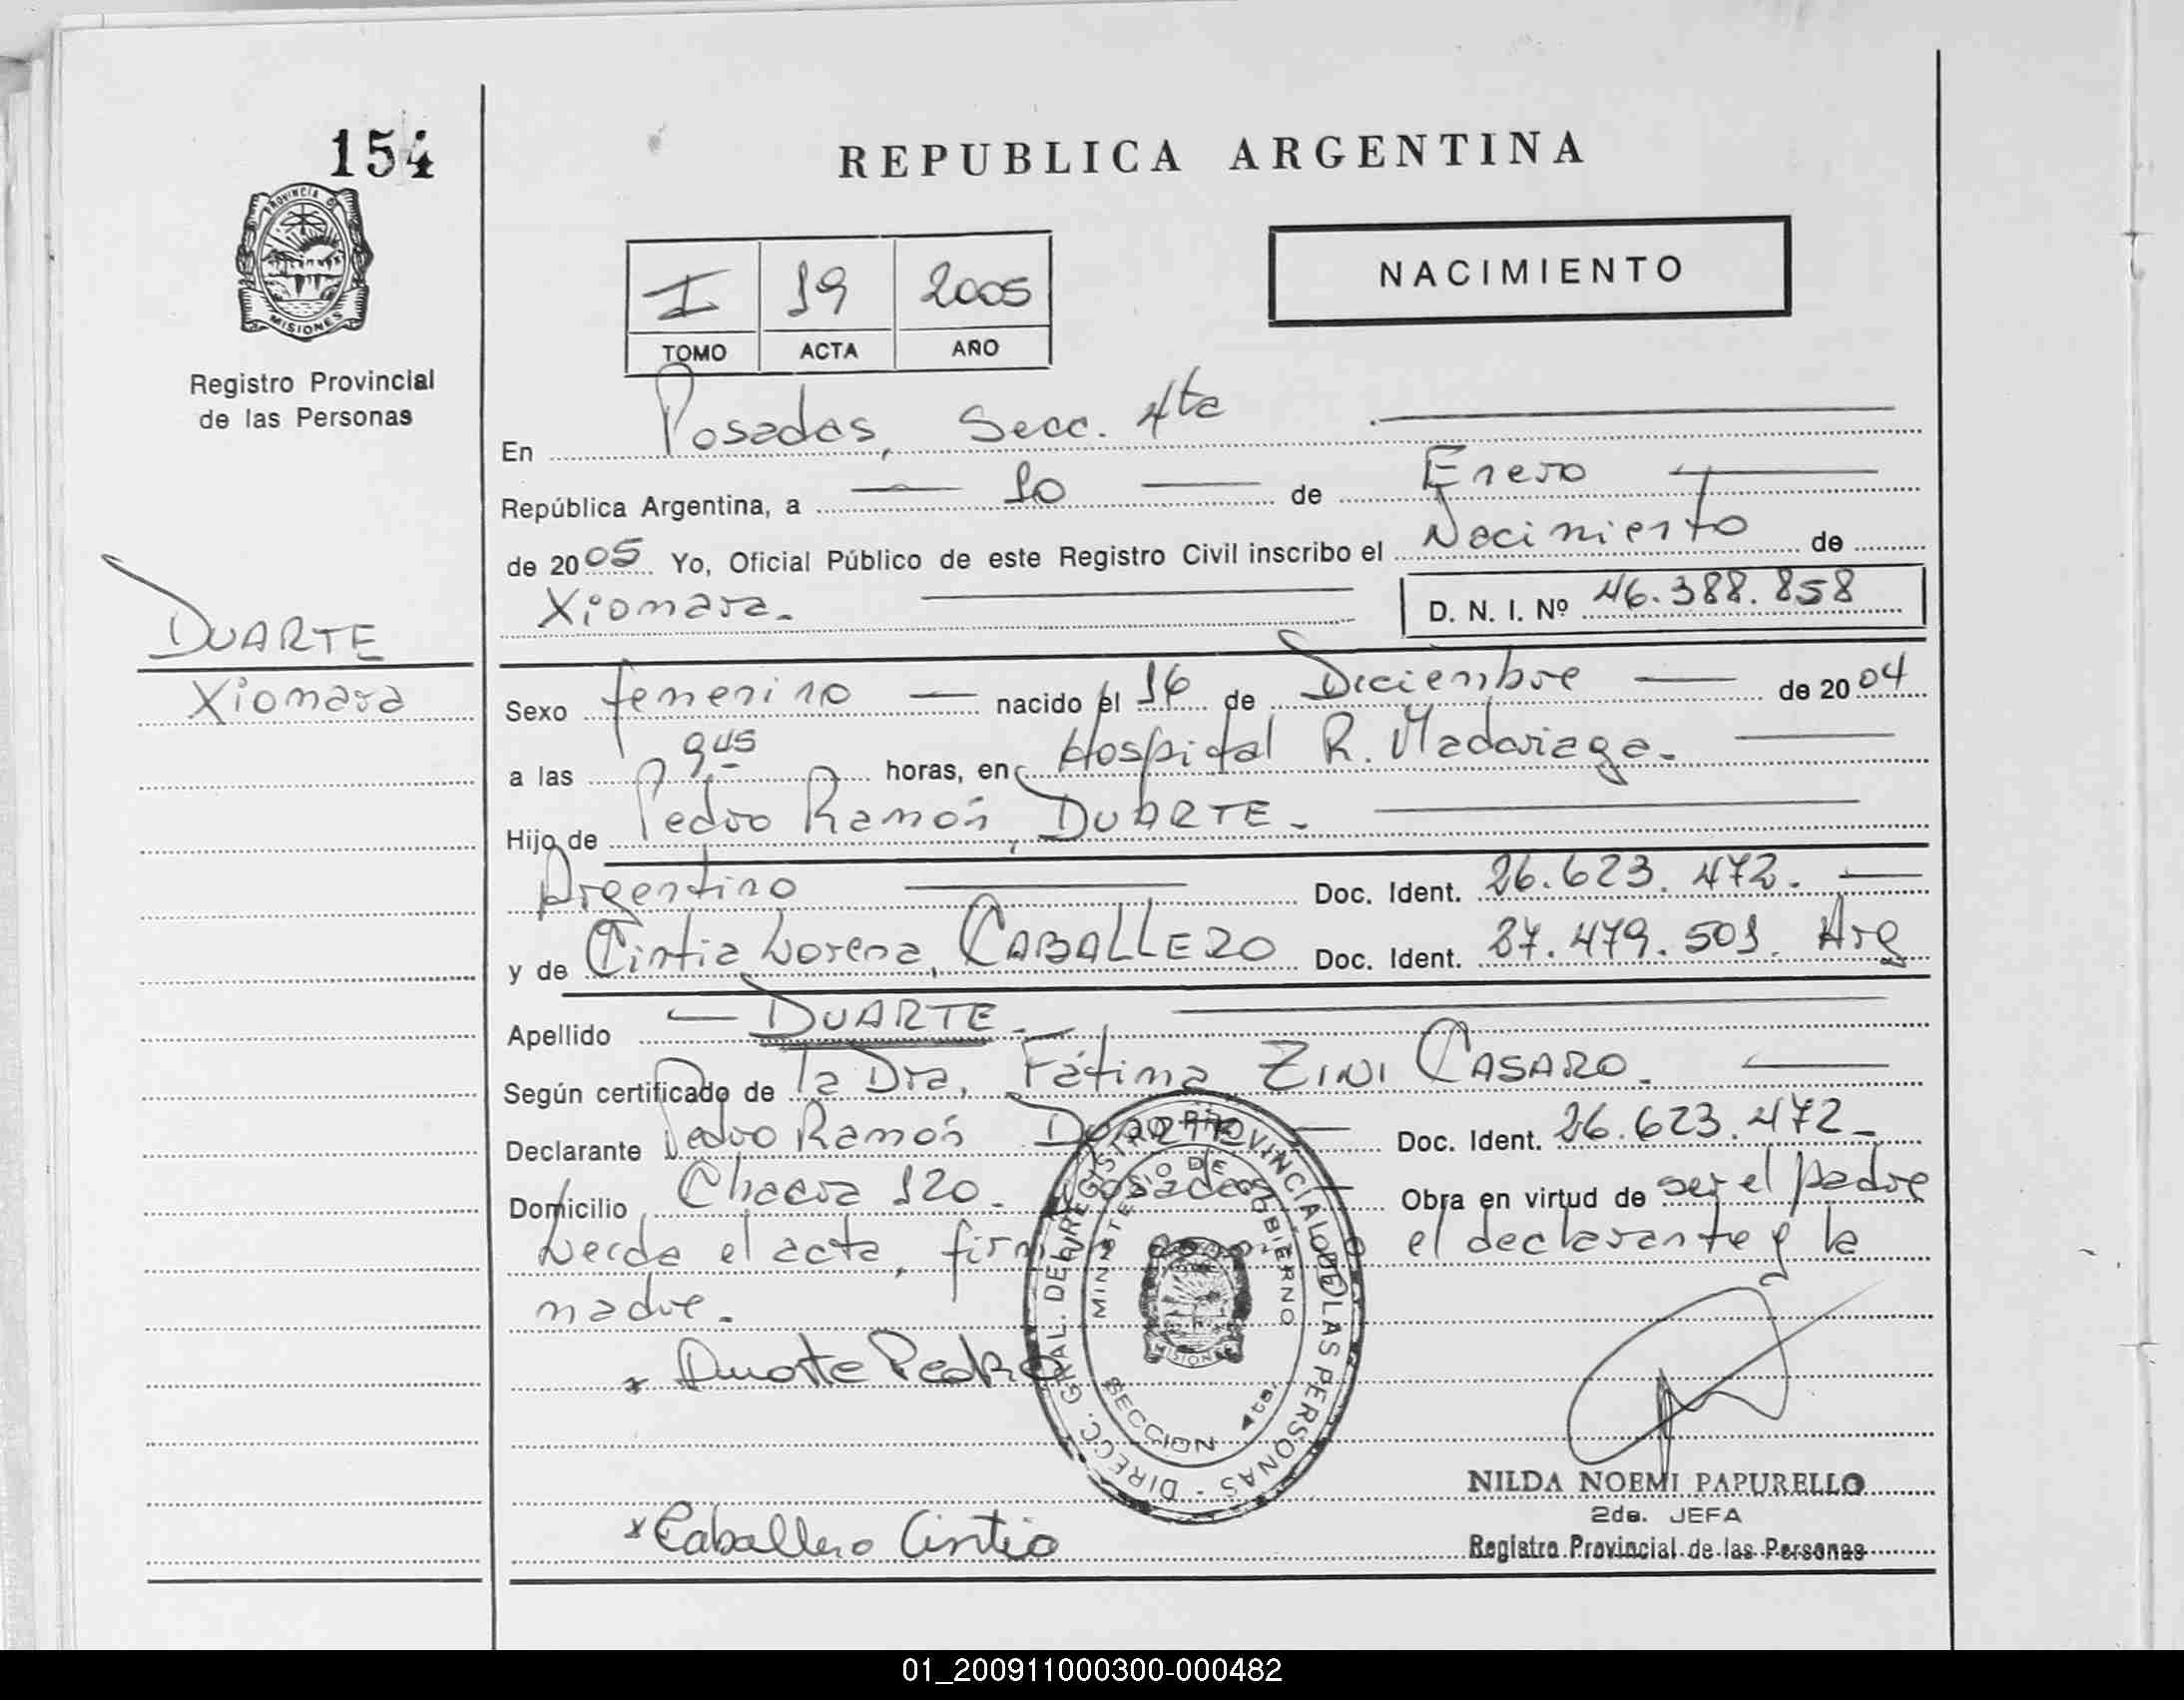 154
PROVINCIA DE
MISIONES
Registro Provincial
de las Personas
DUARTE
Xiomara
REPUBLICA ARGENTINA
I 19 2005
TOMO ACTA AÑO
NACIMIENTO
En Posadas, Secc. 4ta
República Argentina, a 10 de Enero
de 2005 Yo, Oficial Público de este Registro Civil inscribo el Nacimiento de
Xiomara. D. N. I. Nº 46.388.858
Sexo femenino nacido el 16 de Diciembre de 2004
a las 9,45 horas, en Hospital R. Madariaga.
Hijo de Pedro Ramón, DUARTE.
Argentino Doc. Ident. 26.623.472.
y de Cintia Lorena, CABALLERO Doc. Ident. 27.479.501. Arg
Apellido DUARTE.
Según certificado de la Dra. Fátima ZINI CASARO.
Declarante Pedro Ramón DUARTE Doc. Ident. 26.623.472
Domicilio Chacra 120. Posadas Obra en virtud de ser el padre
Leída el acta, firman el declarante y la
madre.
* Duarte Pedro
* Caballero Cintia
DIRECC. GRAL. DEL REGISTRO PROVINCIAL DE LAS PERSONAS -
MINISTERIO DE GOBIERNO
MISIONES
SECCION 4ta.
NILDA NOEMI PAPURELLO
2da. JEFA
Registro Provincial de las Personas
01_200911000300-000482